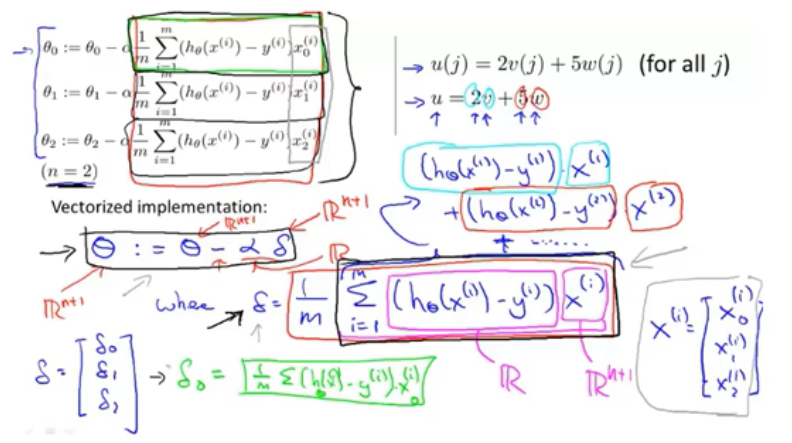 θ₀ := θ₀ − α 1/m ∑_{i=1}^{m} (h_θ(x^(i)) − y^(i)) x₀^(i)
θ₁ := θ₁ − α 1/m ∑_{i=1}^{m} (h_θ(x^(i)) − y^(i)) x₁^(i)
θ₂ := θ₂ − α 1/m ∑_{i=1}^{m} (h_θ(x^(i)) − y^(i)) x₂^(i)
(n = 2)
→ u(j) = 2v(j) + 5w(j) (for all j)
→ u = 2v + 5w
(h_θ(x^(1)) − y^(1)) x^(1)
+ (h_θ(x^(2)) − y^(2)) x^(2)
+ ......
Vectorized implementation:
ℝ^{n+1} ℝ^{n+1}
→ θ := θ − α δ
ℝ
ℝ^{n+1}
where → δ = 1/m ∑_{i=1}^{m} (h_θ(x^(i)) − y^(i)) x^(i)
ℝ ℝ^{n+1}
x^(i) = [x₀^(i) x₁^(i) x₂^(i)]
δ = [δ₀ δ₁ δ₂] → δ₀ = 1/m ∑ (h_θ(x^(i)) − y^(i)) · x₀^(i)